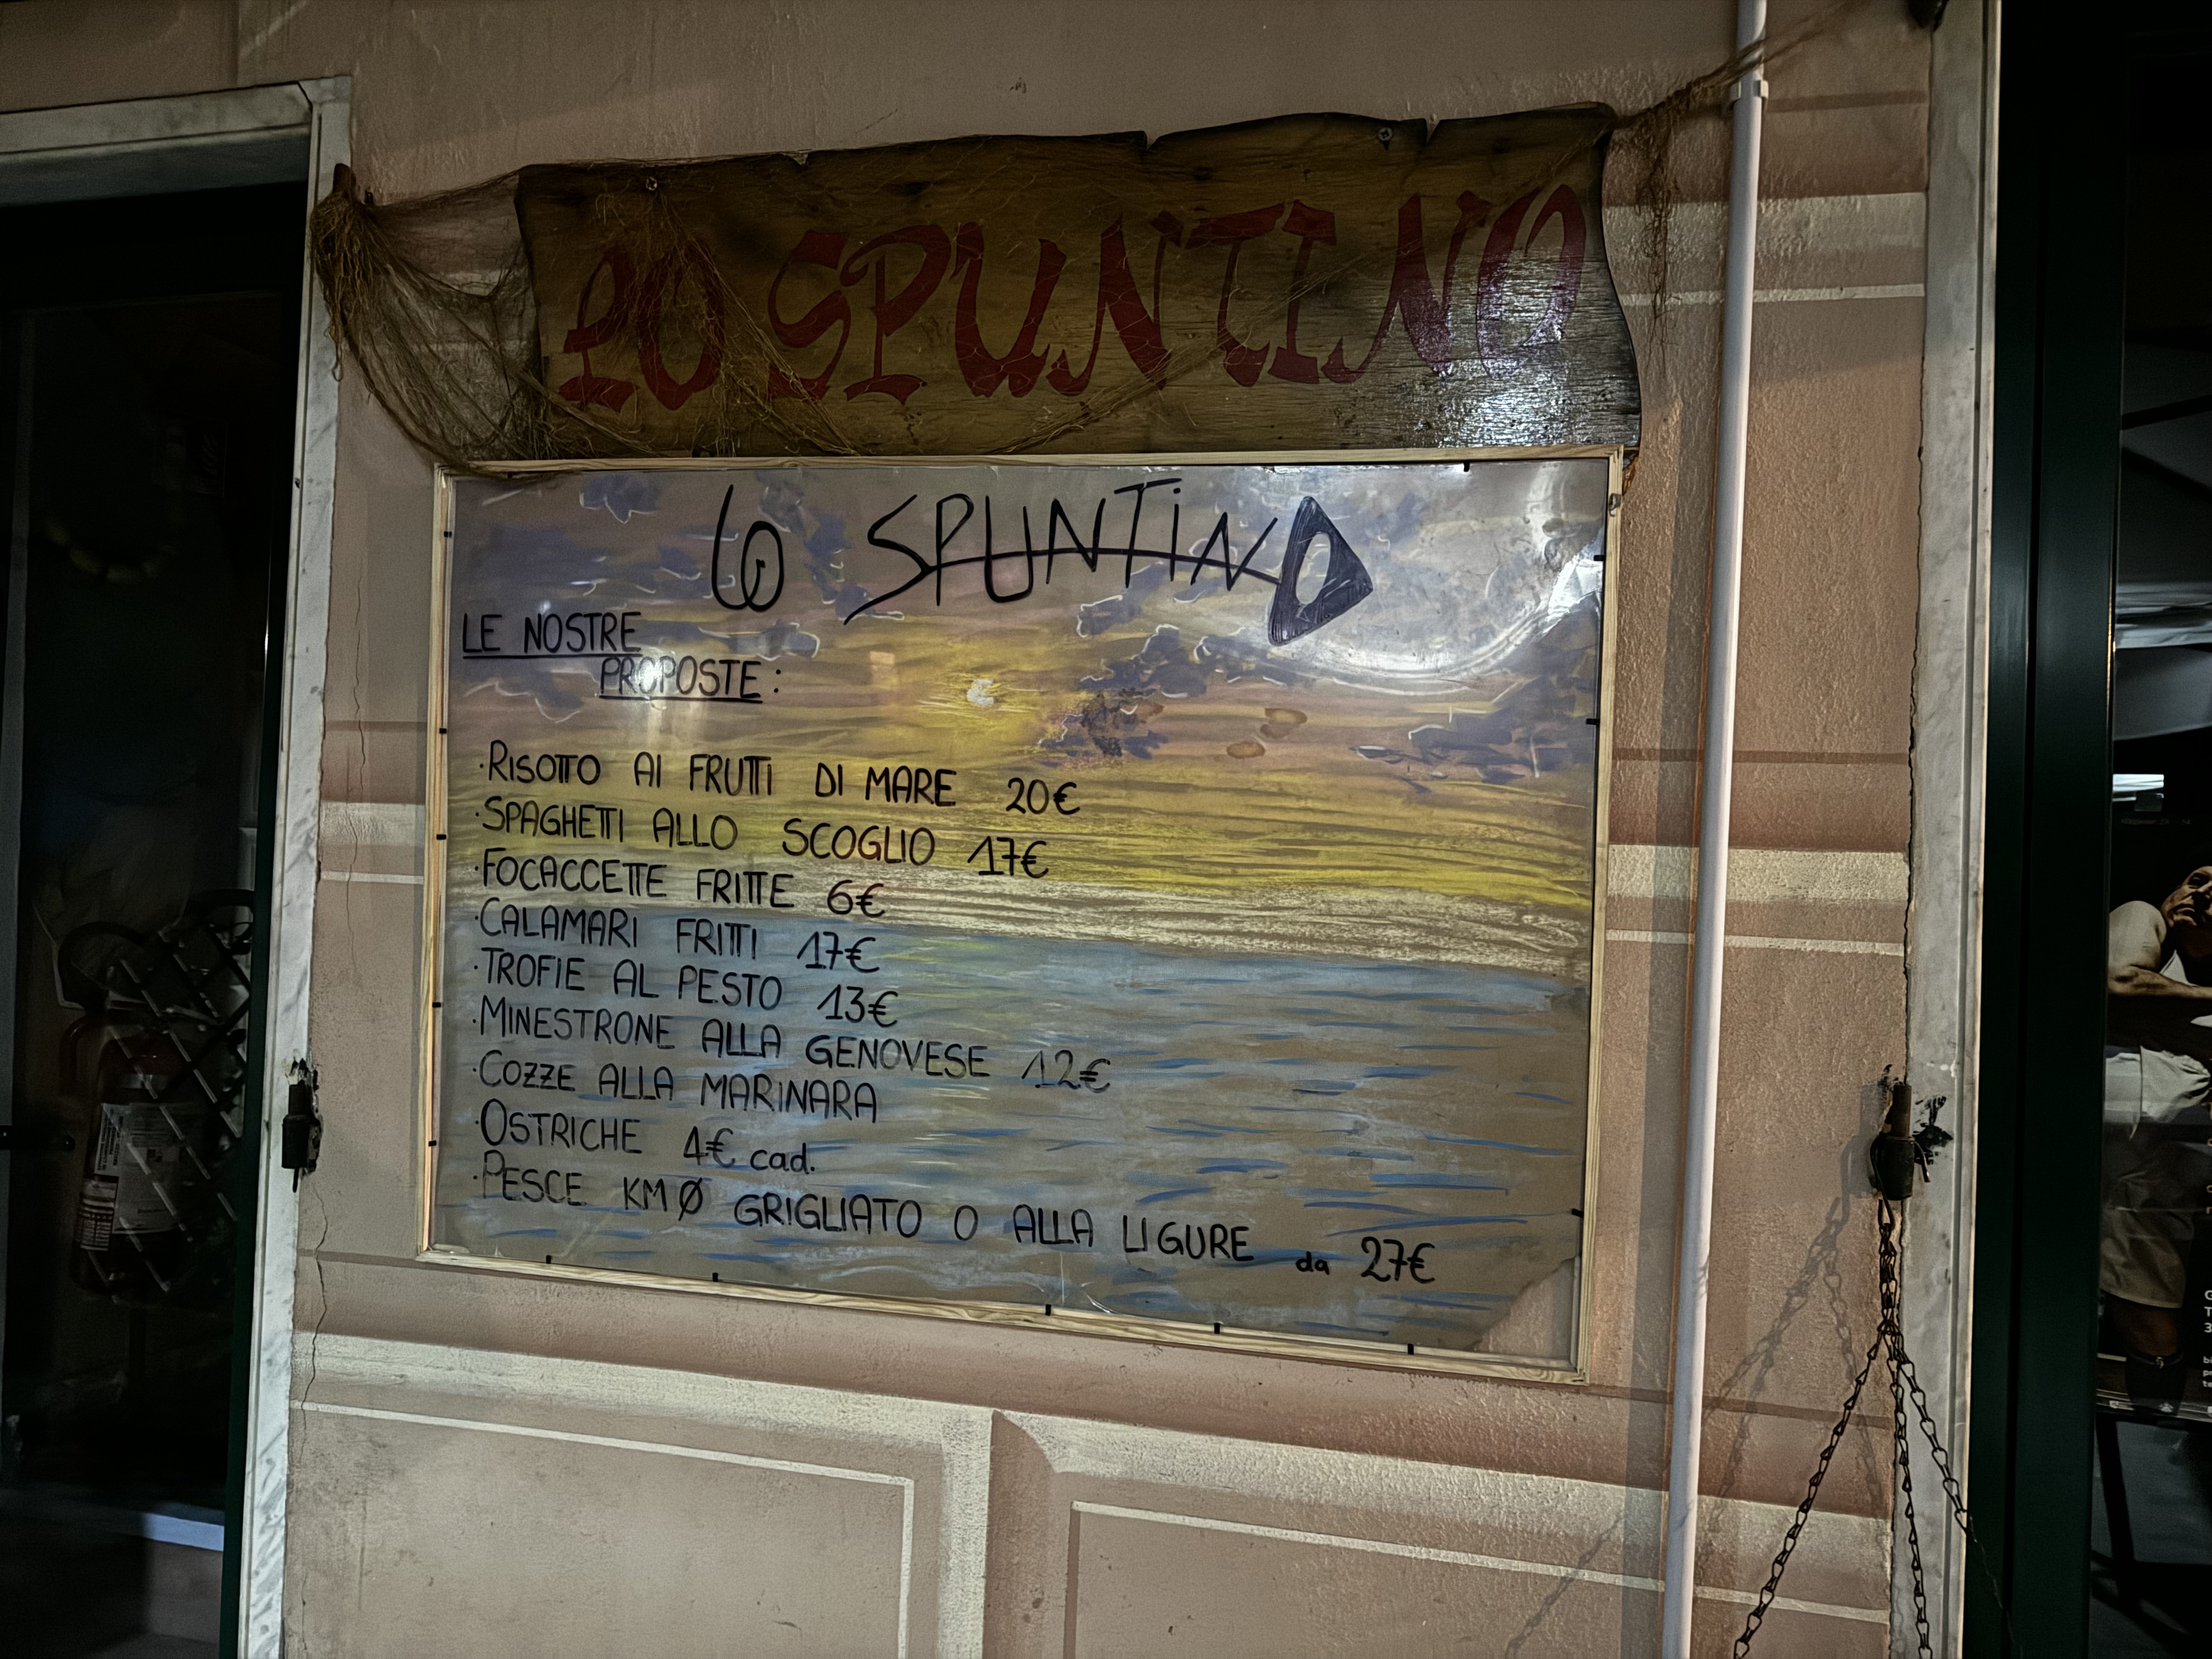 LO SPUNTINO
LO SPUNTINO
LE NOSTRE
PROPOSTE:
·RISOTTO AI FRUTTI DI MARE 20€
·SPAGHETTI ALLO SCOGLIO 17€
·FOCACCETTE FRITTE 6€
·CALAMARI FRITTI 17€
·TROFIE AL PESTO 13€
·MINESTRONE ALLA GENOVESE 12€
·COZZE ALLA MARINARA
·OSTRICHE 4€ cad.
·PESCE KM Ø GRIGLIATO O ALLA LIGURE da 27€